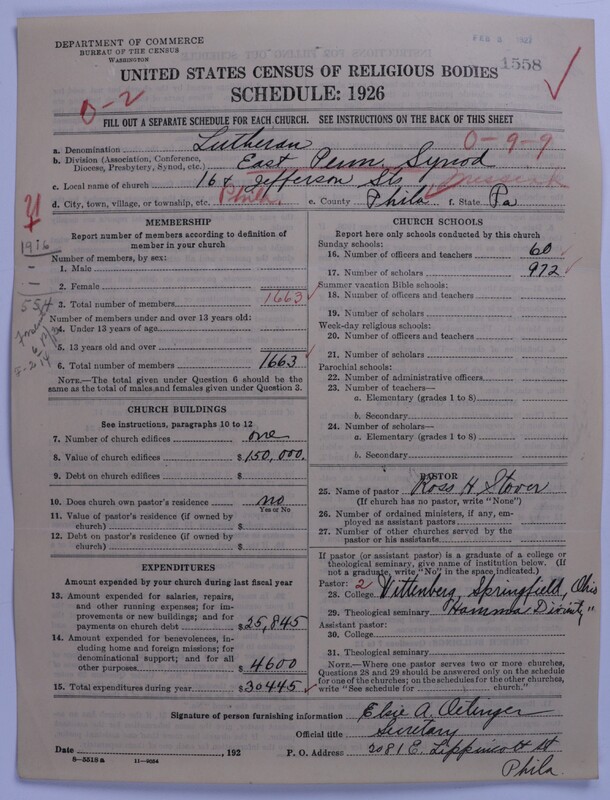 DEPARTMENT OF COMMERCE
BUREAU OF THE CENSUS
WASHINGTON
FEB 1927
1558
UNITED STATES CENSUS OF RELIGIOUS BODIES
SCHEDULE: 1926
0-2
FILL OUT A SEPARATE SCHEDULE FOR EACH CHURCH. SEE INSTRUCTIONS ON THE BACK OF THIS SHEET
a. Denomination Lutheran 0-9-9
b. Division (Association, Conference, Diocese, Presbytery, Synod, etc.) East Penn. Synod
c. Local name of church 16 & Jefferson Sts
d. City, town, village, or township, etc. Phila. e. County Phila f. State Pa
MEMBERSHIP
Report number of members according to definition of member in your church
Number of members, by sex:
1. Male
2. Female
3. Total number of members 1663
Number of members under and over 13 years old:
4. Under 13 years of age
5. 13 years old and over
6. Total number of members 1663
NOTE.—The total given under Question 6 should be the same as the total of males and females given under Question 3.
1916
554
CHURCH BUILDINGS
See instructions, paragraphs 10 to 12
7. Number of church edifices one
8. Value of church edifices $150,000.
9. Debt on church edifices $
10. Does church own pastor's residence no
Yes or No
11. Value of pastor's residence (if owned by church) $
12. Debt on pastor's residence (if owned by church) $
EXPENDITURES
Amount expended by your church during last fiscal year
13. Amount expended for salaries, repairs, and other running expenses; for improvements or new buildings; and for payments on church debt $25,845
14. Amount expended for benevolences, including home and foreign missions; for denominational support; and for all other purposes $4600
15. Total expenditures during year $30445
CHURCH SCHOOLS
Report here only schools conducted by this church
Sunday schools:
16. Number of officers and teachers 60
17. Number of scholars 972
Summer vacation Bible schools:
18. Number of officers and teachers
19. Number of scholars
Week-day religious schools:
20. Number of officers and teachers
21. Number of scholars
Parochial schools:
22. Number of administrative officers
23. Number of teachers—
a. Elementary (grades 1 to 8)
b. Secondary
24. Number of scholars—
a. Elementary (grades 1 to 8)
b. Secondary
PASTOR
25. Name of pastor Ross H Stover
(If church has no pastor, write "None")
26. Number of ordained ministers, if any, employed as assistant pastors
27. Number of other churches served by the pastor or his assistants
If pastor (or assistant pastor) is a graduate of a college or theological seminary, give name of institution below. (If not a graduate, write "No" in the space indicated.)
Pastor: 2
28. College Wittenberg, Springfield, Ohio
29. Theological seminary Hamma Divinity "
Assistant pastor:
30. College
31. Theological seminary
NOTE.—Where one pastor serves two or more churches, Questions 28 and 29 should be answered only on the schedule for one of the churches; on the schedules for the other churches, write "See schedule for church."
Signature of person furnishing information Elsie A. Oetinger
Official title Secretary
Date , 192 P. O. Address 2081 E. Lippincott St
Phila.
8—5518a 11—9664